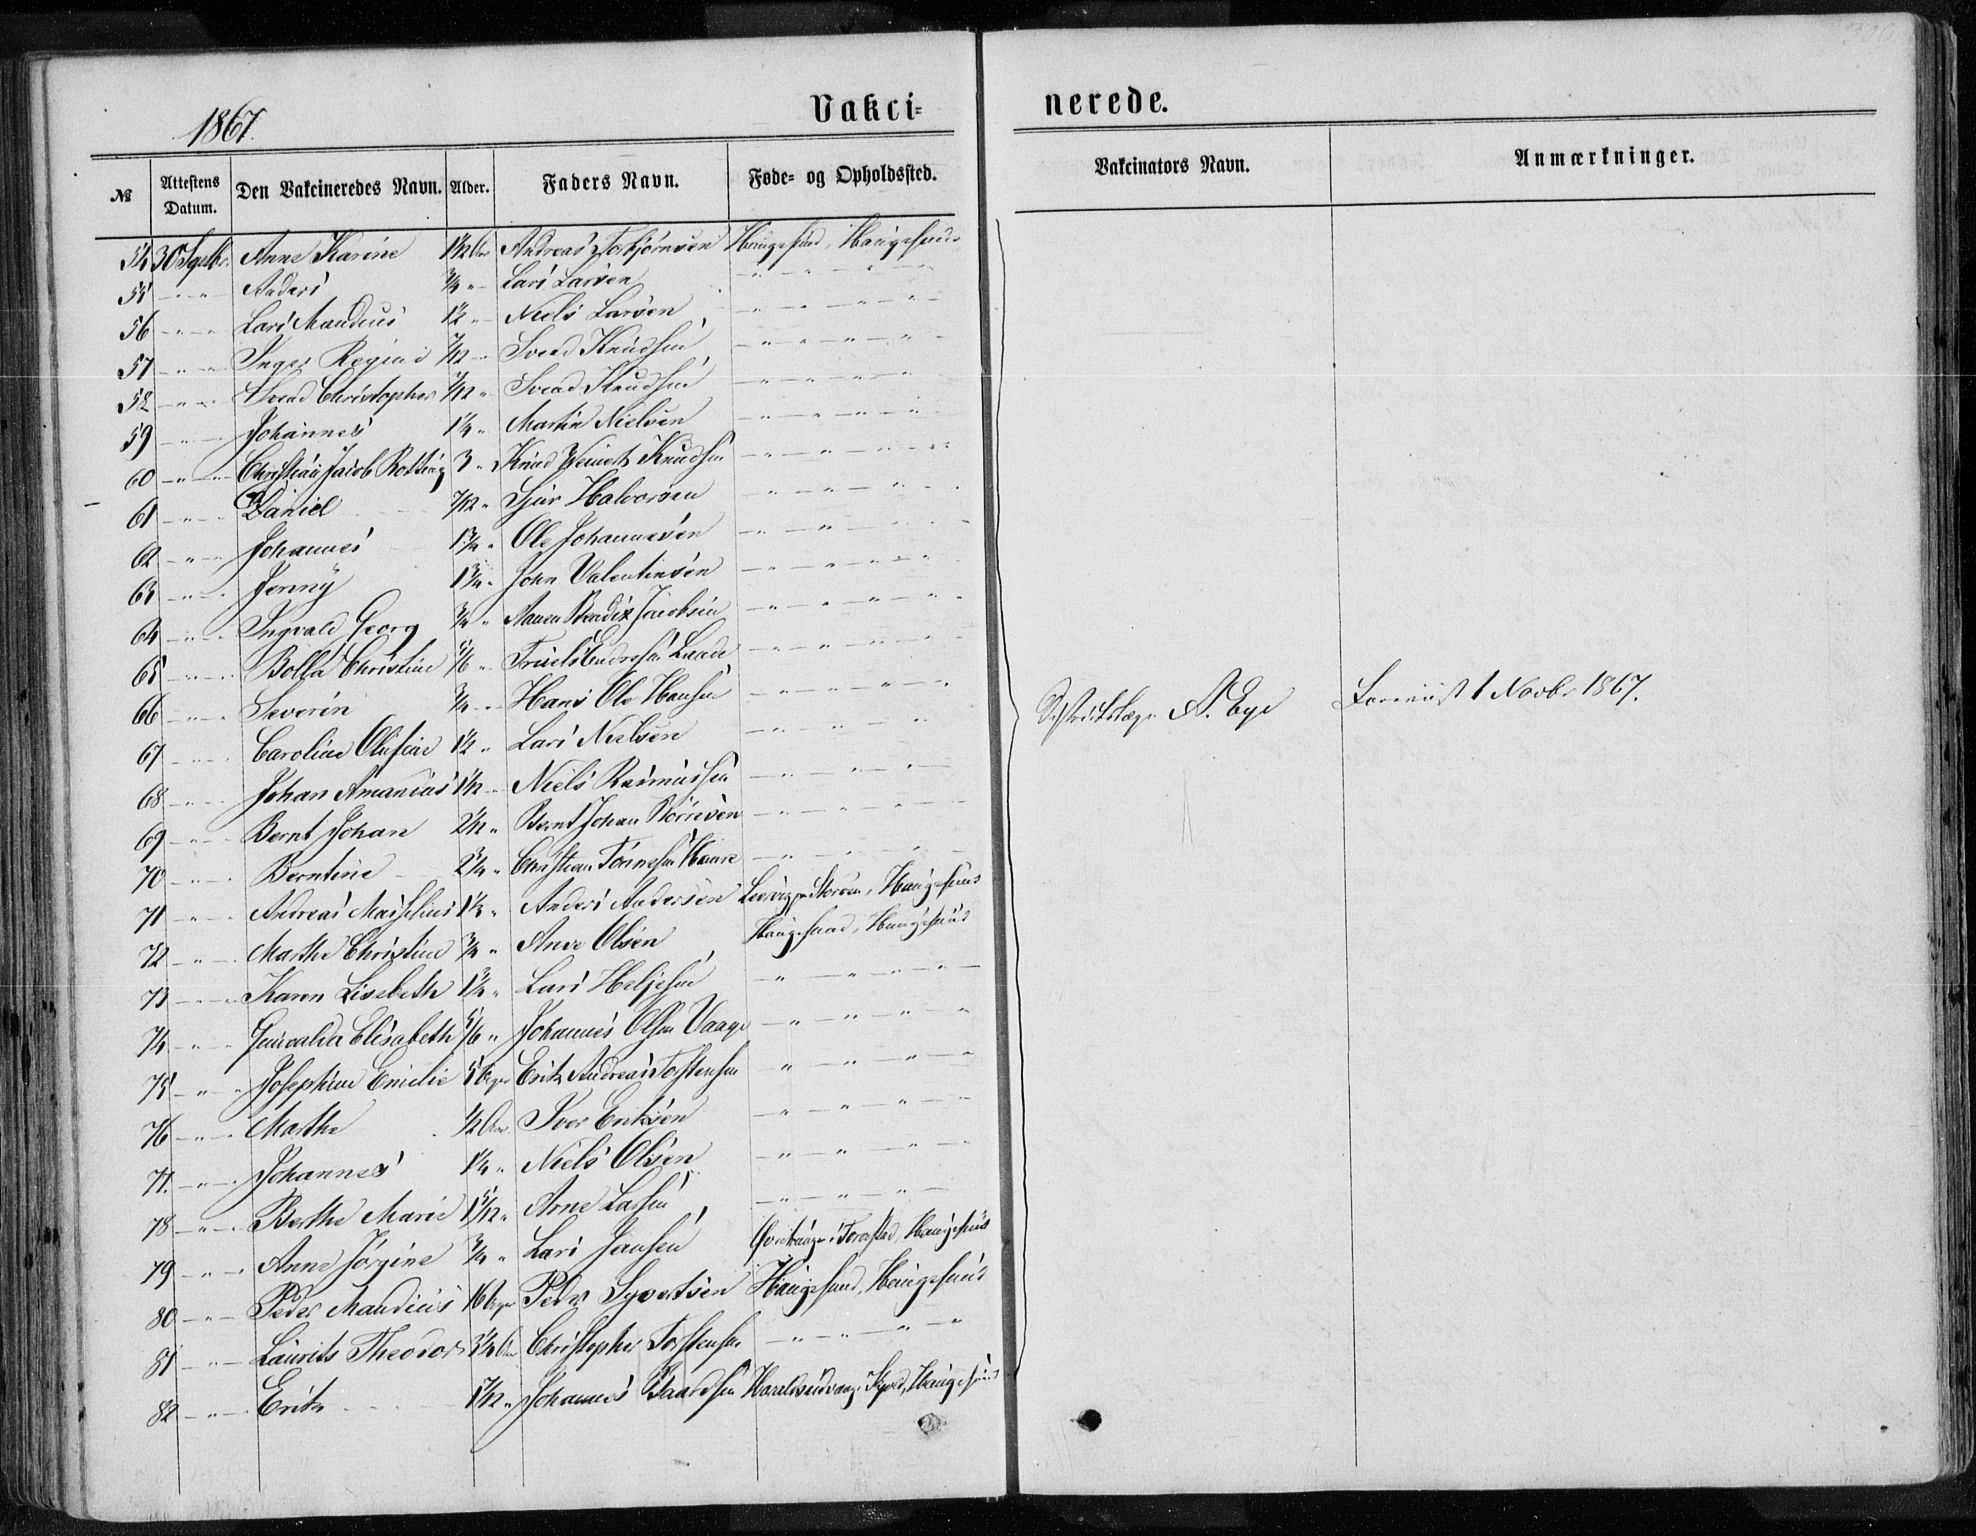 1867.
Vakci-
nerede.
№ Attestens Datum. Den Vakcineredes Navn. Alder. Faders Navn. Føde- og Opholdssted. Vakcinators Navn. Anmærkninger.
54 30 Septbr. Anne Karine 1½ Aar Andreas Torbjørnsen Haugesund, Haugesund
55 " Anders ¾ " Lars Larsen " "
56 " Lars Mandius ½ " Niels Larsen " "
57 " Inger Regine 7/12 " Svend Knudsen " "
58 " Svend Christopher 7/12 " Svend Knudsen " "
59 " Johannes 1¼ " Martin Nielsen " "
60 " Christian Jacob Rotting 3 " Knud Knudsen " "
61 " Daniel 7/12 " Sjur Halvorsen " "
62 " Johannes 1¾ " Ole Johannesen " "
63 " Jenny 1¾ " John Valentinsen " "
64 " Ingvald Georg ¾ " Bendix Jacobsen " "
65 " Bolla Christine 5/6 " Truels Endresen " "
66 " Severin ¾ " Hans Ole Hansen " "
67 " Caroline Olufine 1½ " Lars Nielsen " "
68 " Johan Amandus 1½ " Niels Rasmussen " "
69 " Bernt Johan 2½ " Bernt Johan " "
70 " Berntine 2¾ " Christian Tønnesen Haare " "
71 " Andreas 1½ " Anders Andersen Storøen, Haugesund
72 " Marthe Christine ¾ " Olsen Haugesund, Haugesund
73 " Karen Lisebeth 1¾ " Lars Heljesen " "
74 " Elisabeth 5/6 " Johannes Olsen Vaage " "
75 " Josephine Emilie 5 Uger Erik Andreas Torstensen " "
76 " Marthe ½ Aar Iver Eriksen " "
77. " Johannes 1¼ " Niels Olsen " "
78 " Berthe Marie 1 5/12 " Arne Larsen " "
79 " Anne Jørgine ¾ " Lars Jansen i Torvestad, Haugesund
80 " Peder Mandius 16 Uger Peder Syvertsen Haugesund, Haugesund
81 " Laurits Theodor 3¼ Aar Christopher Torstensen " "
82 " Erik 1 7/12 " Johannes Baardsen i Skjold, Haugesund
Districtslæge A. Eye
1 Novbr 1867.